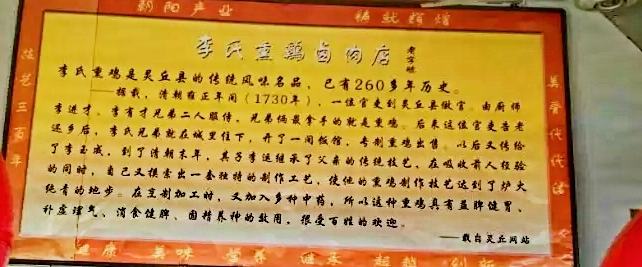 朝阳产业 铸就辉煌
李氏熏鸡卤肉店
老字号
技艺三百年
美誉代代传
李氏熏鸡是灵丘县的传统风味名品，已有260多年历史。
据载，清朝雍正年间（1730年），一位官吏到灵丘县做官。由厨师
李进才，李有才兄弟二人服侍，兄弟俩最拿手的就是熏鸡。后来这位官吏告老
还乡后，李氏兄弟就在城里住下，开了一间饭馆，专制熏鸡出售。以后又传给
了李玉成，到了清朝末年，其子李运继承了父亲的传统技艺，在吸收前人经验
的同时，自己又摸索出一套独特的制作工艺，使他的熏鸡制作技艺达到了炉火
纯青的地步。在烹制加工时，又加入多种中药，所以这种熏鸡具有益脾健胃、
补虚理气、消食健脾、固精养神的效用，很受百姓的欢迎。
——载自灵丘网站
健康 美味 营养 继承 超越 创新